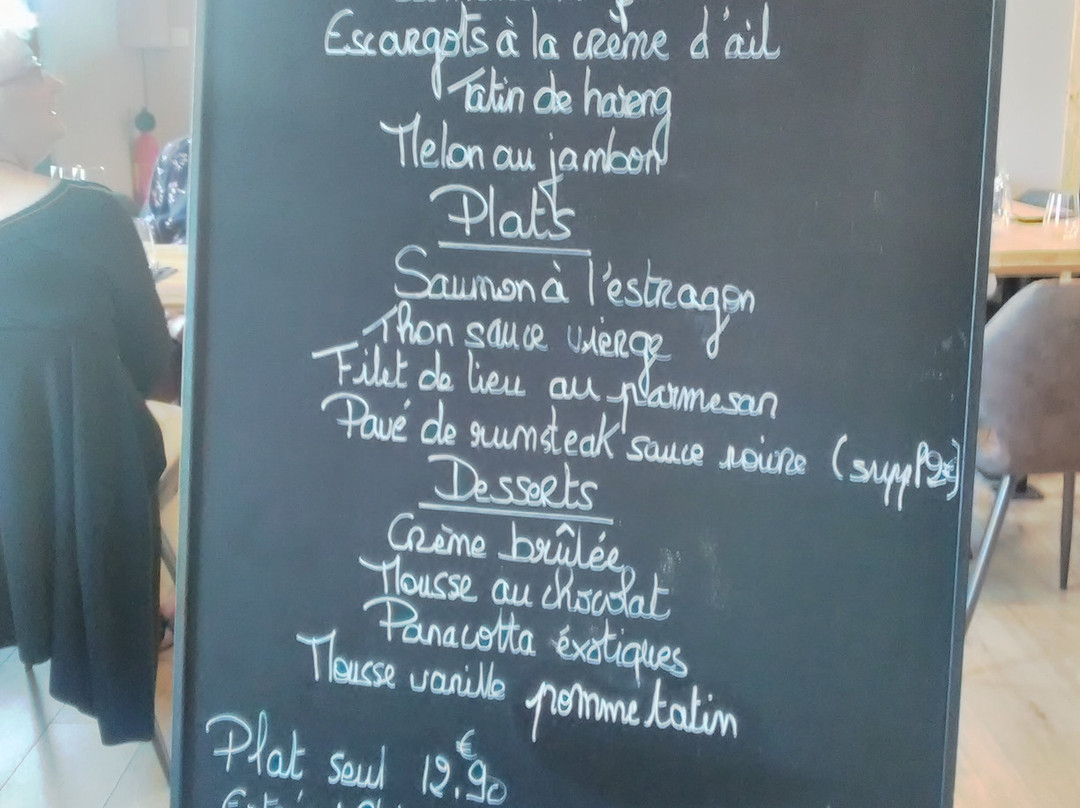 Escargots à la crème d'ail
Tatin de hareng
Melon au jambon
Plats
Saumon à l'estragon
Thon sauce vièrge
Filet de lieu au parmesan
Pavé de rumsteak sauce poivre (supp 2€)
Desserts
Crème brûlée
Mousse au chocolat
Panacotta éxotiques
Mousse vanille pomme tatin
Plat seul 12.90€